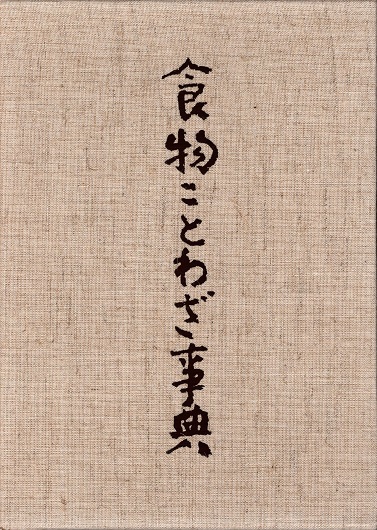 食物ことわざ事典